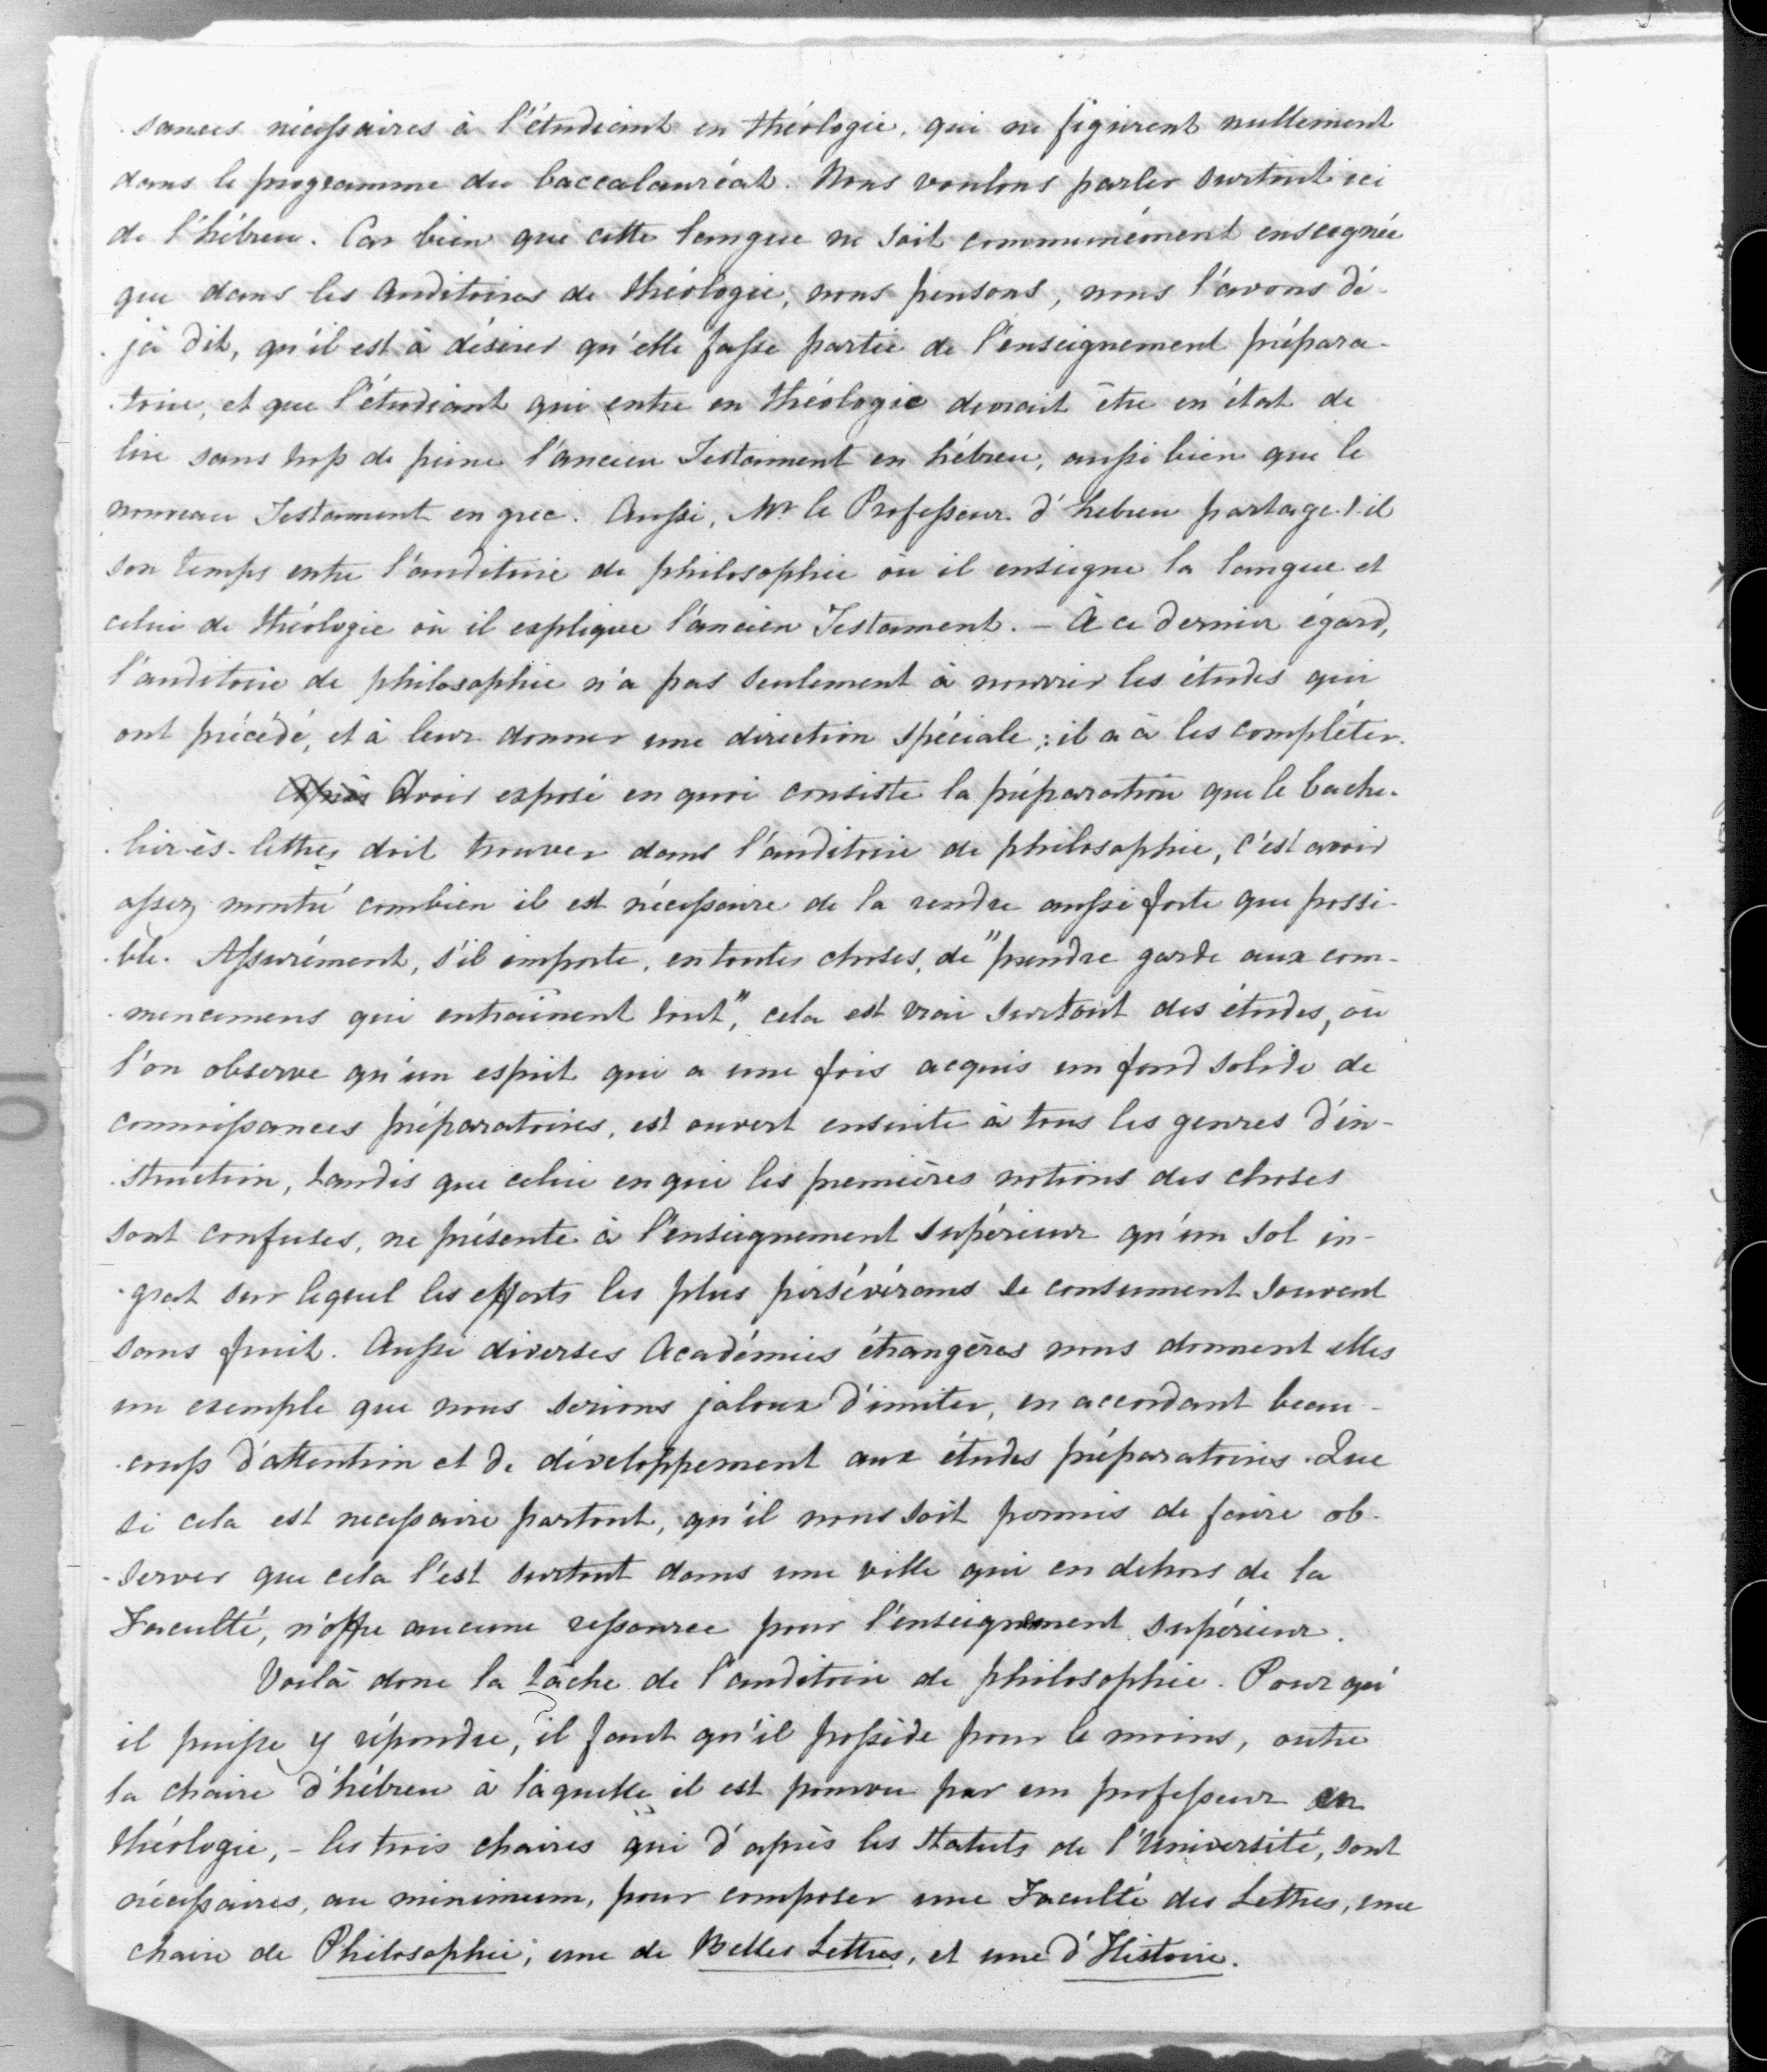 sances nécessaires à l'étudiant en théologie, qui ne figurent nullement
dans le programme du baccalauréat. Nous voulons parler surtout ici
de l'hébreu. Car bien que cette langue ne soit communément enseignée
que dans les Auditoires de théologie, nous pensons, nous l'avons dé-
jà dit, qu'il est à désirer qu'elle fasse partie de l'enseignement prépara-
toire, et que l'étudiant qui entre en théologie devrait être en état de
lire sans trop de peine l'ancien Testament en hébreu, aussi bien que le
nouveau Testament en grec. Aussi, Mr le Professeur d'hebreu partage-t-il
son temps entre l'auditoire de philosophie où il enseigne la langue et
celui de théologie où il explique l'ancien Testament. – À ce dernier égard,
l'auditoire de philosophie n'a pas seulement à nourrir les études qui
ont précédé, et à leur donner une direction spéciale ; il a à les compléter.
Après Avoir exposé en quoi consiste la préparation que le bache-
lier-ès-lettres doit trouver dans l'auditoire de philosophie, c'est avoir
assez montré combien il est nécessaire de la rendre aussi forte que possi-
ble. Assurément, s'il importe, en toutes choses, de "prendre garde aux com-
mencemens qui entraînent tout", cela est vrai surtout des études, où
l'on observe qu'un esprit qui a une fois acquis un fond solide de
connaissances préparatoires, est ouvert ensuite à tous les genres d'in-
struction, tandis que celui en qui les premières notions des choses
sont confuses, ne présente à l'enseignement supérieur qu'un sol in-
grat sur lequel les efforts les plus persévérans se consument souvent
sans fruit. Aussi diverses Académies étrangères nous donnent elles
un exemple que nous serions jaloux d'imiter, en accordant beau-
coup d'attention et de développement aux études préparatoires. Que
si cela est necessaire partout, qu'il nous soit permis de faire ob-
server que cela l'est surtout dans une ville qui en dehors de la
Faculté, n'offre aucune ressource pour l'enseignement supérieur.
Voilà donc la tâche de l'auditoire de philosophie. Pour qu'
il puisse y répondre, il faut qu'il possède pour le moins, outre
la chaire d'hébreu à laquelle il est pourvu par un professeur en
théologie, – les trois chaires qui d'après les statuts de l'Université, sont
nécessaires, au minimum, pour composer une Faculté des Lettres, une
chaire de Philosophie; une de Belles Lettres, et une d'Histoire.